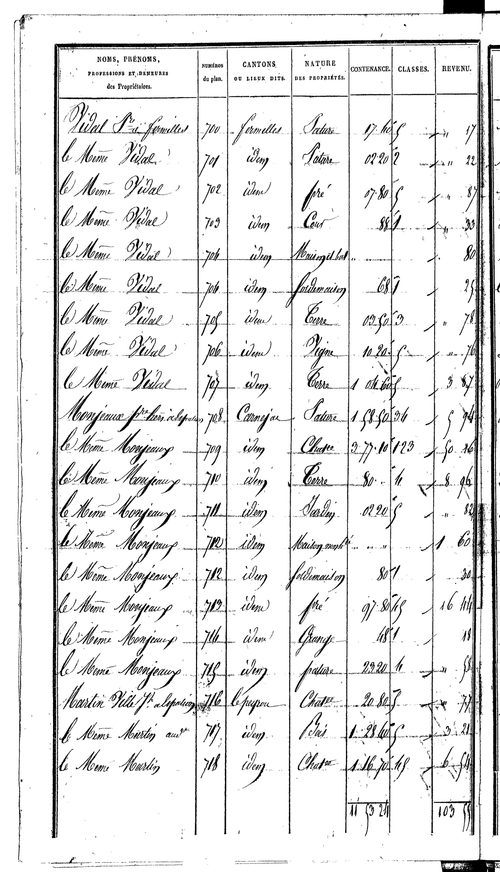 NOMS, PRÉNOMS, PROFESSIONS ET DEMEURES des Propriétaires. NUMÉROS du plan. CANTONS OU LIEUX DITS. NATURE DES PROPRIÉTÉS. CONTENANCE. CLASSES. REVENU.
Vidal à formelles 700 formelles Pature 17 60 5 " 17
le Même Vidal 701 idem Pature 02 20 2 " 22
le Même Vidal 702 idem pré 07 80 5 " 87
le Même Vidal 703 idem Cour 88 1 " 33
le Même Vidal 704 idem 80
le Même Vidal 704 idem sol de maison 68 1 25
le Même Vidal 705 idem Terre 03 50 3 " 78
le Même Vidal 706 idem Vigne 10 20 5 " 76
le Même Vidal 707 idem Terre 1 04 60 5 3 87
Monjeaux 708 Carnejac Pature 1 58 50 34 5 94
le Même Monjeaux 709 idem Chatre 3 77 10 123 50 26
le Même Monjeaux 710 idem Terre 80 4 8 96
le Même Monjeaux 711 idem Jardin 02 20 5 " 82
le Même Monjeaux 712 idem Maison 1 60
le Même Monjeaux 712 idem sol de maison 80 1 30
le Même Monjeaux 713 idem pré 97 80 45 16 44
le Même Monjeaux 714 idem Grange 48 1 18
le Même Monjeaux 715 idem pature 23 20 4 " 58
Martin 716 le peyrou Chatre 20 80 5 " 77
le Même Martin 717 idem Bois 1 28 60 5 3 21
le Même Martin 718 idem Chatre 1 16 70 45 6 54
11 53 24 103 55